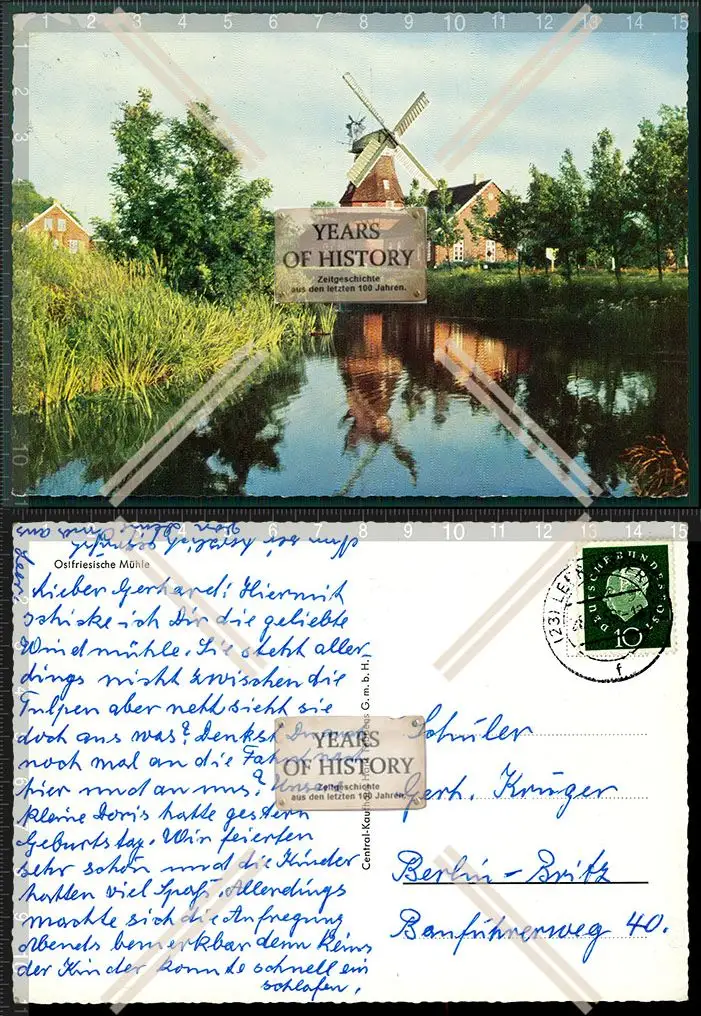 YEARS
OF HISTORY
Zeitgeschichte
aus den letzten 100 Jahren.
Nun sei herzlich gegrüßt
von und aus
Leer
Ostfriesische Mühle
Lieber Gerhard! Hiermit
schicke ich Dir die geliebte
Windmühle. Sie steht aller-
dings nicht zwischen die
Tulpen aber nett sieht sie
doch aus was? Denkst Du auch
noch mal an die Fahrt nach
hier und an uns? Unsere
kleine Doris hatte gestern
Geburtstag. Wir feierten
sehr schön und die Kinder
hatten viel Spaß. Allerdings
machte sich die Aufregung
abends bemerkbar denn keins
der Kinder konnte schnell ein
schlafen.
Central-Kaufhaus G.m.b.H.
YEARS
OF HISTORY
Zeitgeschichte
aus den letzten 100 Jahren.
(23) LEER
f
DEUTSCHE BUNDESPOST
10
Schüler
Gerh. Krüger
Berlin-Britz
Bauführerweg 40.